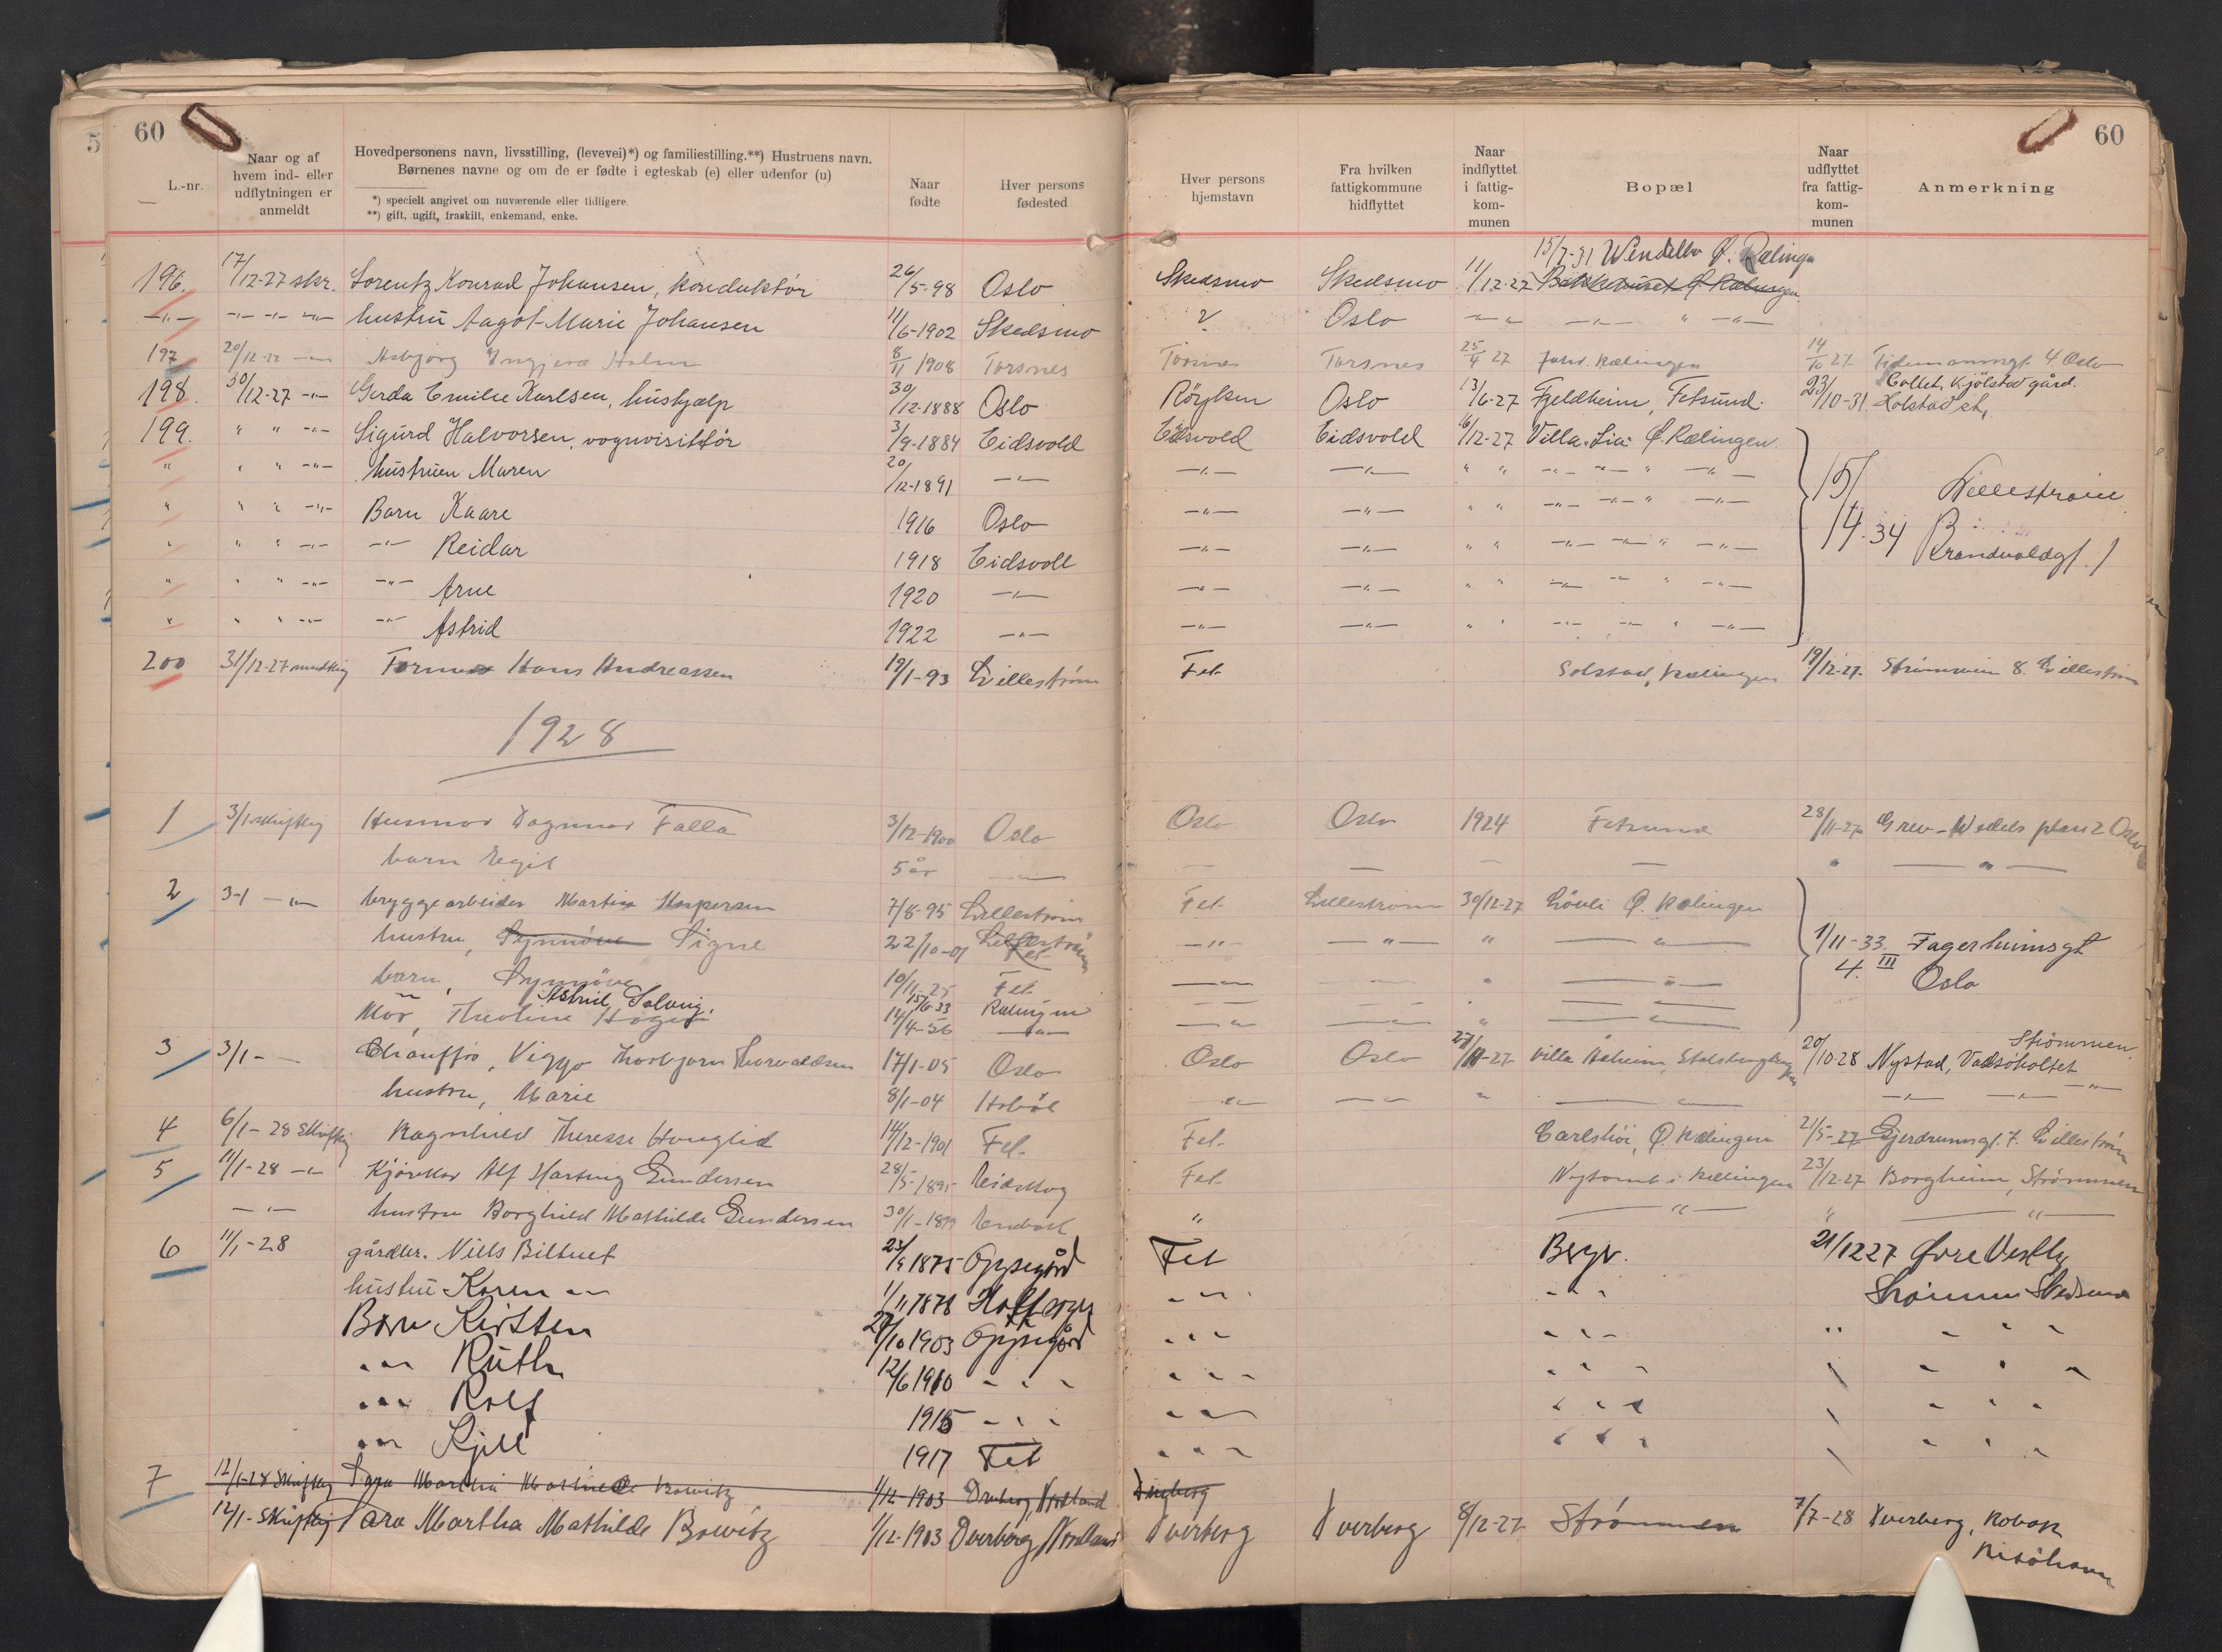 60
L.-nr.
Naar og af hvem ind- eller udflytningen er anmeldt
Hovedpersonens navn, livsstilling, (levevei)*) og familiestilling.**) Hustruens navn.
Børnenes navne og om de er fødte i egteskab (e) eller udenfor (u)
*) specielt angivet om nuværende eller tidligere.
**) gift, ugift, fraskilt, enkemand, enke.
Naar fødte
Hver persons fødested
Hver persons hjemstavn
Fra hvilken fattigkommune hidflyttet
Naar indflyttet i fattig-kom-munen
Bopæl
Naar udflyttet fra fattig-kom-munen
Anmerkning
60
15/7-31 Wendelbo Ø. Rælingn
196. 17/12-27 skr. Lorentz Konrad Johansen, konduktör 26/5-98 Oslo Skedsmo Skedsmo 11/12-27 Ø. Rælingen
-"- -"- -"- -"- hustru Aagot Marie Johansen 11/6-1902 Skedsmo ? Oslo -"- -"- " -"-
197 20/12-27 -"- Asbjørg Holm 8/11 1908 Torsnes Torsnes Torsnes 25/4 27 Rælingen 14/10 27 Tidemannsgt. 4 Oslo
198. 30/12-27 -"- Gerda Emilie Karlsen, hushjælp 30/12-1888 Oslo Röyken Oslo 13/6-27 Fjeldheim, Fetsund. 23/10-31 Collet, Kjölstad gård. Holstad st.
199. " " -"- Sigurd Halvorsen, vognvisitör 3/9-1884 Eidsvold Eidsvold Eidsvold 16/12-27 Villa "Lia" Ø. Rælingen.
" " " -"- hustruen Maren 20/12-1891 -"- -"- -"- " " -"- -"- " -"- 15/4-34 Lillestrøm
" " " -"- Barn Kaare 1916 Oslo -"- -"- " " -"- -"- " -"- Brandvoldgt. 1
" " " -"- -"- Reidar 1918 Eidsvoll -"- -"- " " -"- -"- " -"-
" " " -"- -"- Arne 1920 -"- -"- -"- " " -"- -"- " -"-
" " " -"- -"- Astrid 1922 -"- -"- -"- " " -"- -"- " -"-
200 31/12-27 mundtlig Hans Andreassen 19/1-93 Lillestrøm Fet Solstad, Rælingen 19/12-27. Strømsvein 8. Lillestrøm
1928
1 3/1 skriftlig Husmor Dagmar Falla 3/12-1900 Oslo Oslo Oslo 1924 Fetsund 28/11-27 Grev-Wedels plas 2 Oslo
barn Egil 5 år — — — — — " — " —
2 3-1 -"- bryggearbeider Martin Kaspersen 7/8-95 Lillestrøm Fet Lillestrøm 30/12-27 Lövli Ø. Rælingen
hustru, Synnöve Signe 22/10-01 Lillestrøm Fet -"- -"- " -"- 1/11-33. Fagerheimsgt
barn, Synnöve 10/1-25 Fet -"- " -"- 4. III Oslo
" Astrid Solveig. 15/6-33 Rælingen
Mor, Theoline 14/4-56 -"- -"- -"- " -"-
3 3/1- — Chauffør, Viggo Thorbjørn Thorvaldsen 17/1-05 Oslo Oslo Oslo 27/11-27 Villa 20/10-28 Nystad, Vadsöholtet Strömmen.
hustru, Marie 8/1-04 Hobøl -"- -"- " -"- -"- -"- -"-
4 6/1-28 skriftlig Ragnhild Therese Houglid 14/12-1901 Fet. Fet. Carlshöi, Ø. Rælingen 21/5-27 Gjerdrumsgt. 7. Lillestrøm
5 11/1-28 -"- Kjörekar Alf Hartvig Gundersen 28/5-1895 Eidskog Fet. Nysand i Rælingen 23/12-27 Borgheim, Strømmen
-"- hustru Borghild Mathilde Gundersen 30/1-1899 Enebakk " -"- " -"-
6 11/1-28 gårdbr. Niels Biltuet 23/9 1875 Oppegård Fet Berg. 21/12 27 Øvre Vestby
hustru Karen -"- 1/11 1878 -"- -"- Strömmen Skedsmo
Barn Kirsten 27/10 1903 Oppegård -"- -"- " " " "
-"- Ruth 12/6 1910 -"- -"- -"-
-"- Rolf 1915 -"- -"- -"-
-"- Kjell 1917 Fet -"-
7 12/1-28 skriftlig Tora Martha Mathilde Bowitz 1/12-1903 Dverberg, Nordland Dverberg
12/1-skriftlig Tora Martha Mathilde Bowitz 1/12-1903 Dverberg, Nordland Dverberg Dverberg 8/12-27 Strömmen 7/7-28 Dverberg,
Risöhavn